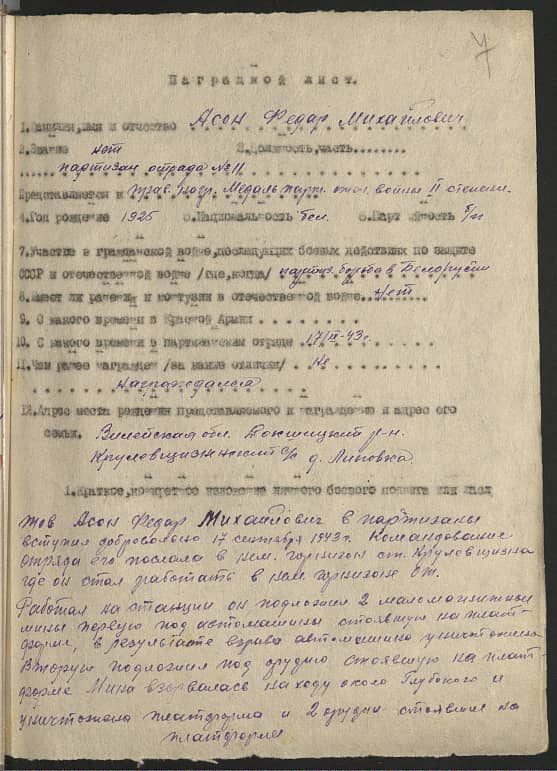 4
Наградной лист.
1. Фамилия, имя и отчество Асон Федар Михайлович
2. Звание нет 3. Должность, часть........
партизан отряда № 11
Представляется к Медаль парт. отеч. войны II степени.
4. Год рождение 1925 5. Национальность бел. 6. Партийность б/п
7. Участие в гражданской войне, последующих боевых действиях по защите
СССР и отечественной войне /где, когда/ партиз. борьба в Белоруссии
8. Имеет ли ранения и контузии в отечественной войне..... Нет
9. С какого времени в Красной Армии . . . . . . . .
10. С какого времени в партизанском отряде . 17/IX-43 г.
11. Чем ранее награжден /за какие отличия/ . Не
награждался
12. Адрес места рождения представляемого к награждению и адрес его
семьи. Вилейская обл. Докшицкий р-н.
Крулевщизнский с/с д. Липовка.
1. Краткое, конкретное изложение личного боевого подвига или заслуг
Асон Федар Михайлович в партизаны
вступил добровольно 17 сентября 1943 г. Командование
отряда его послала в нем. гарнизон ст. Крулевщизна
где он стал работать в нем. гарнизоне
Работая на станции он подложил 2 маломагнитные
мины первую под автомашины стоявшую на плат-
форме, в результате взрыва автомашина уничтожена
Вторую подложил под орудию стоявшую на плат
форме Мина взорвалась на ходу около Глубокого и
уничтожена платформа и 2 орудии стоявшие на
платформе